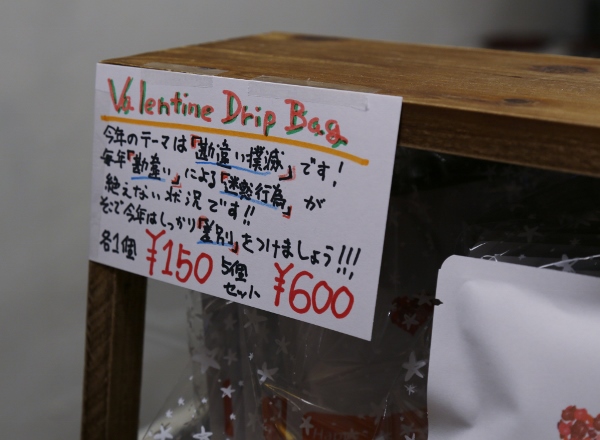 Valentine Drip Bag
今年のテーマは『勘違い撲滅』です!
毎年『勘違い』による『迷惑行為』が
絶えない状況です!!
そこで今年はしっかり『差別』をつけましょう!!!
各1個 ¥150 5個セット ¥600